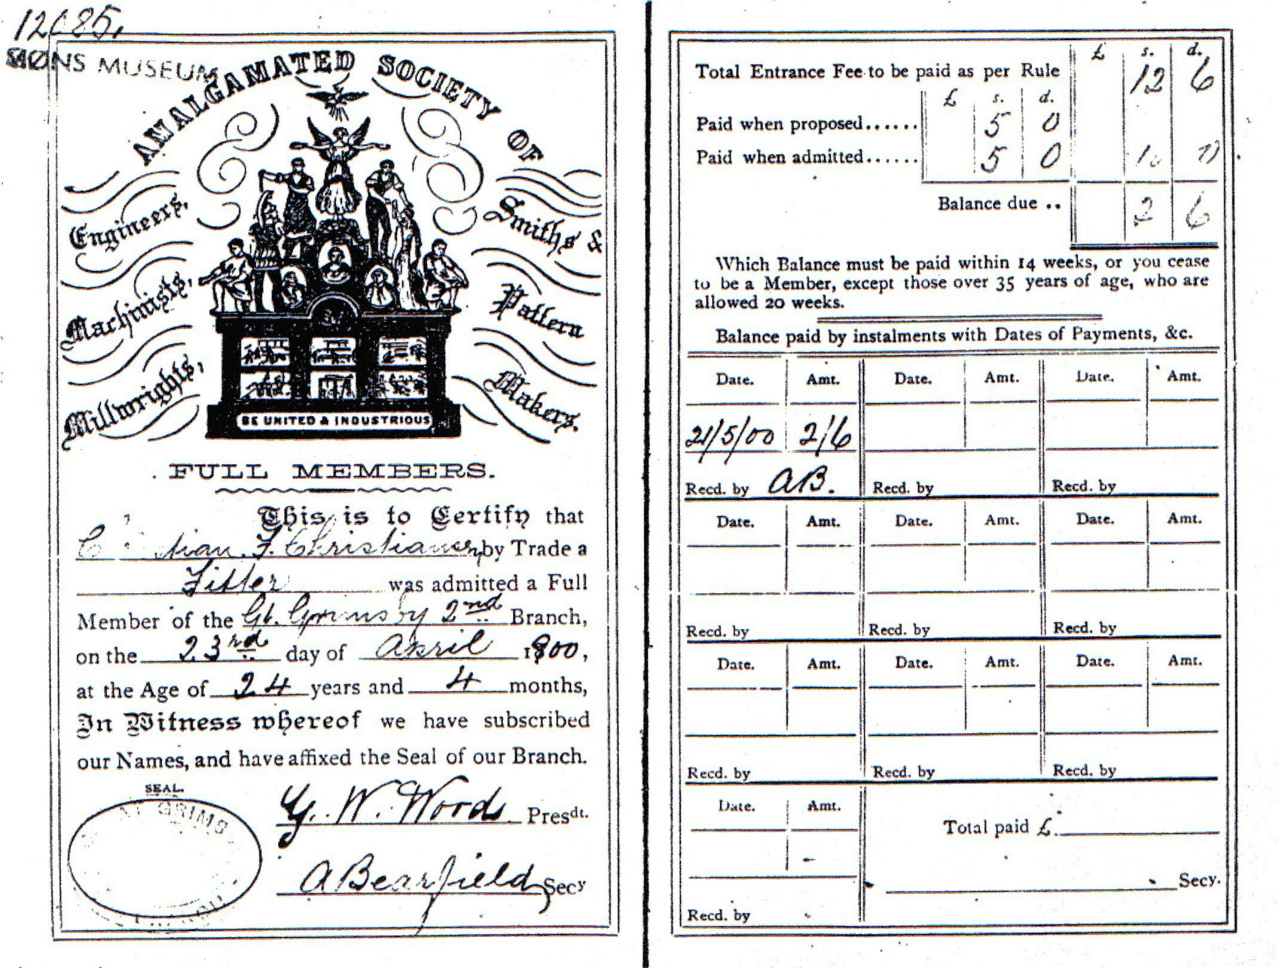 12085.
MONS MUSEUM
AMALGAMATED SOCIETY OF
Engineers,
Machinists,
Millwrights,
Smiths &
Pattern
Makers.
BE UNITED & INDUSTRIOUS
FULL MEMBERS.
This is to Certify that
F. Christiansen by Trade a
Fitter was admitted a Full
Member of the Gt. Grimsby 2nd Branch,
on the 23rd day of April 1900,
at the Age of 24 years and 4 months,
In Witness whereof we have subscribed
our Names, and have affixed the Seal of our Branch.
SEAL.
GRIMS
G. W. Woods Presdt.
A Bearfield Secy
£ s. d.
Total Entrance Fee to be paid as per Rule 12 6
£ s. d.
Paid when proposed...... 5 0
Paid when admitted...... 5 0 10 0
Balance due .. 2 6
Which Balance must be paid within 14 weeks, or you cease
to be a Member, except those over 35 years of age, who are
allowed 20 weeks.
Balance paid by instalments with Dates of Payments, &c.
Date. Amt. Date. Amt. Date. Amt.
21/5/00 2/6
Recd. by AB. Recd. by Recd. by
Date. Amt. Date. Amt. Date. Amt.
Recd. by Recd. by Recd. by
Date. Amt. Date. Amt. Date. Amt.
Recd. by Recd. by Recd. by
Date. Amt.
Total paid £
Secy.
Recd. by